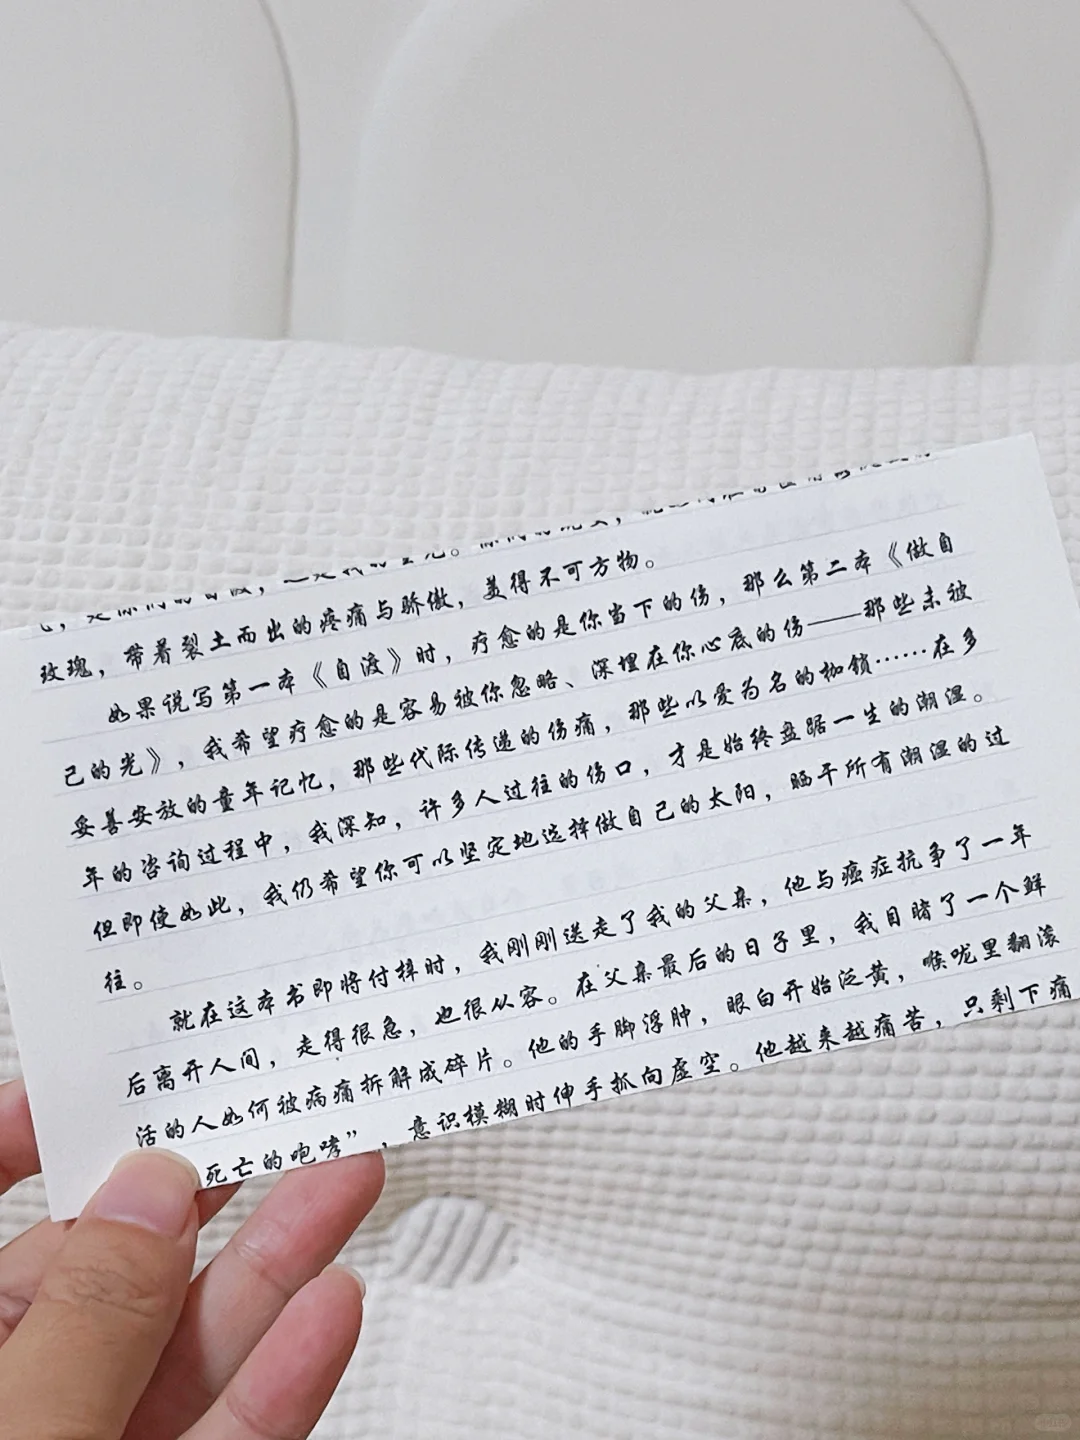 玫瑰，带着裂土而出的疼痛与骄傲，美得不可方物。
如果说写第一本《自渡》时，疗愈的是你当下的伤，那么第二本《做自
己的光》，我希望疗愈的是容易被你忽略、深埋在你心底的伤——那些未被
妥善安放的童年记忆，那些代际传递的伤痛，那些以爱为名的枷锁……在多
年的咨询过程中，我深知，许多人过往的伤口，才是始终盘踞一生的潮湿。
但即使如此，我仍希望你可以坚定地选择做自己的太阳，晒干所有潮湿的过
往。
就在这本书即将付梓时，我刚刚送走了我的父亲，他与癌症抗争了一年
后离开人间，走得很急，也很从容。在父亲最后的日子里，我目睹了一个鲜
活的人如何被病痛拆解成碎片。他的手脚浮肿，眼白开始泛黄，喉咙里翻滚
死亡的咆哮”，意识模糊时伸手抓向虚空。他越来越痛苦，只剩下痛